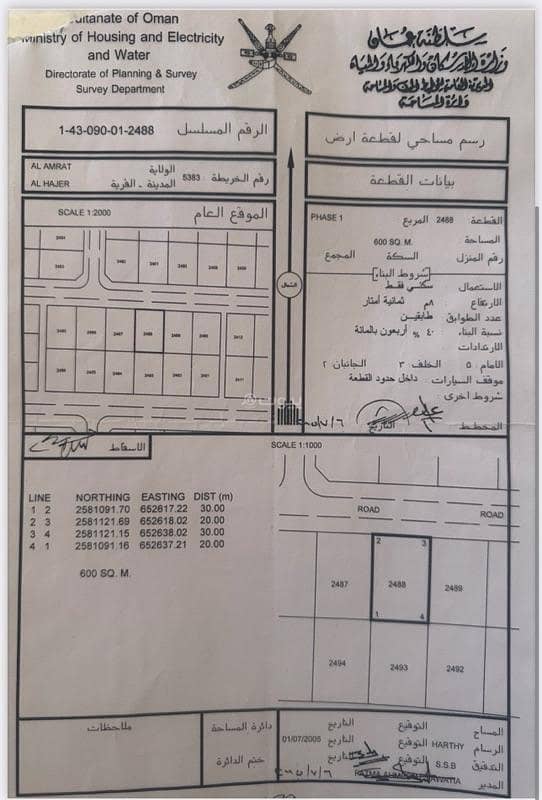 Sultanate of Oman
Ministry of Housing and Electricity
and Water
Directorate of Planning & Survey
Survey Department
سلطنة عمان
وزارة الإسكان والكهرباء والمياه
دائرة المساحة
1-43-090-01-2488 الرقم المسلسل
رسم مساحي لقطعة ارض
AL AMRAT الولاية
AL HAJER المدينة - القرية
5383 رقم الخريطة
بيانات القطعة
SCALE 1:2000 الموقع العام
الشمال
PHASE 1 المربع 2488 القطعة
600 SQ. M. المساحة
المجمع السكة رقم المنزل
شروط البناء
الاستعمال سكني فقط
الارتفاع ٨م ثمانية أمتار
عدد الطوابق طابقين
نسبة البناء ٤٠ % أربعون بالمائة
الارتدادات
الامام ٥ الخلف ٣ الجانبان ٢
موقف السيارات داخل حدود القطعة
شروط اخرى
المخطط التاريخ
2487 2488
الاسقاط
SCALE 1:1000
LINE NORTHING EASTING DIST (m)
1 2 2581091.70 652617.22 30.00
2 3 2581121.69 652618.02 20.00
3 4 2581121.15 652638.02 30.00
4 1 2581091.16 652637.21 20.00
600 SQ. M.
ROAD
ROAD
2 3
2487 2488 2489
1 4
2494 2493 2492
ملاحظات
دائرة المساحة
ختم الدائرة
المساح التوقيع التاريخ
الرسام HARTHY التوقيع التاريخ 01/07/2005
التدقيق S.S.B التوقيع التاريخ
المدير